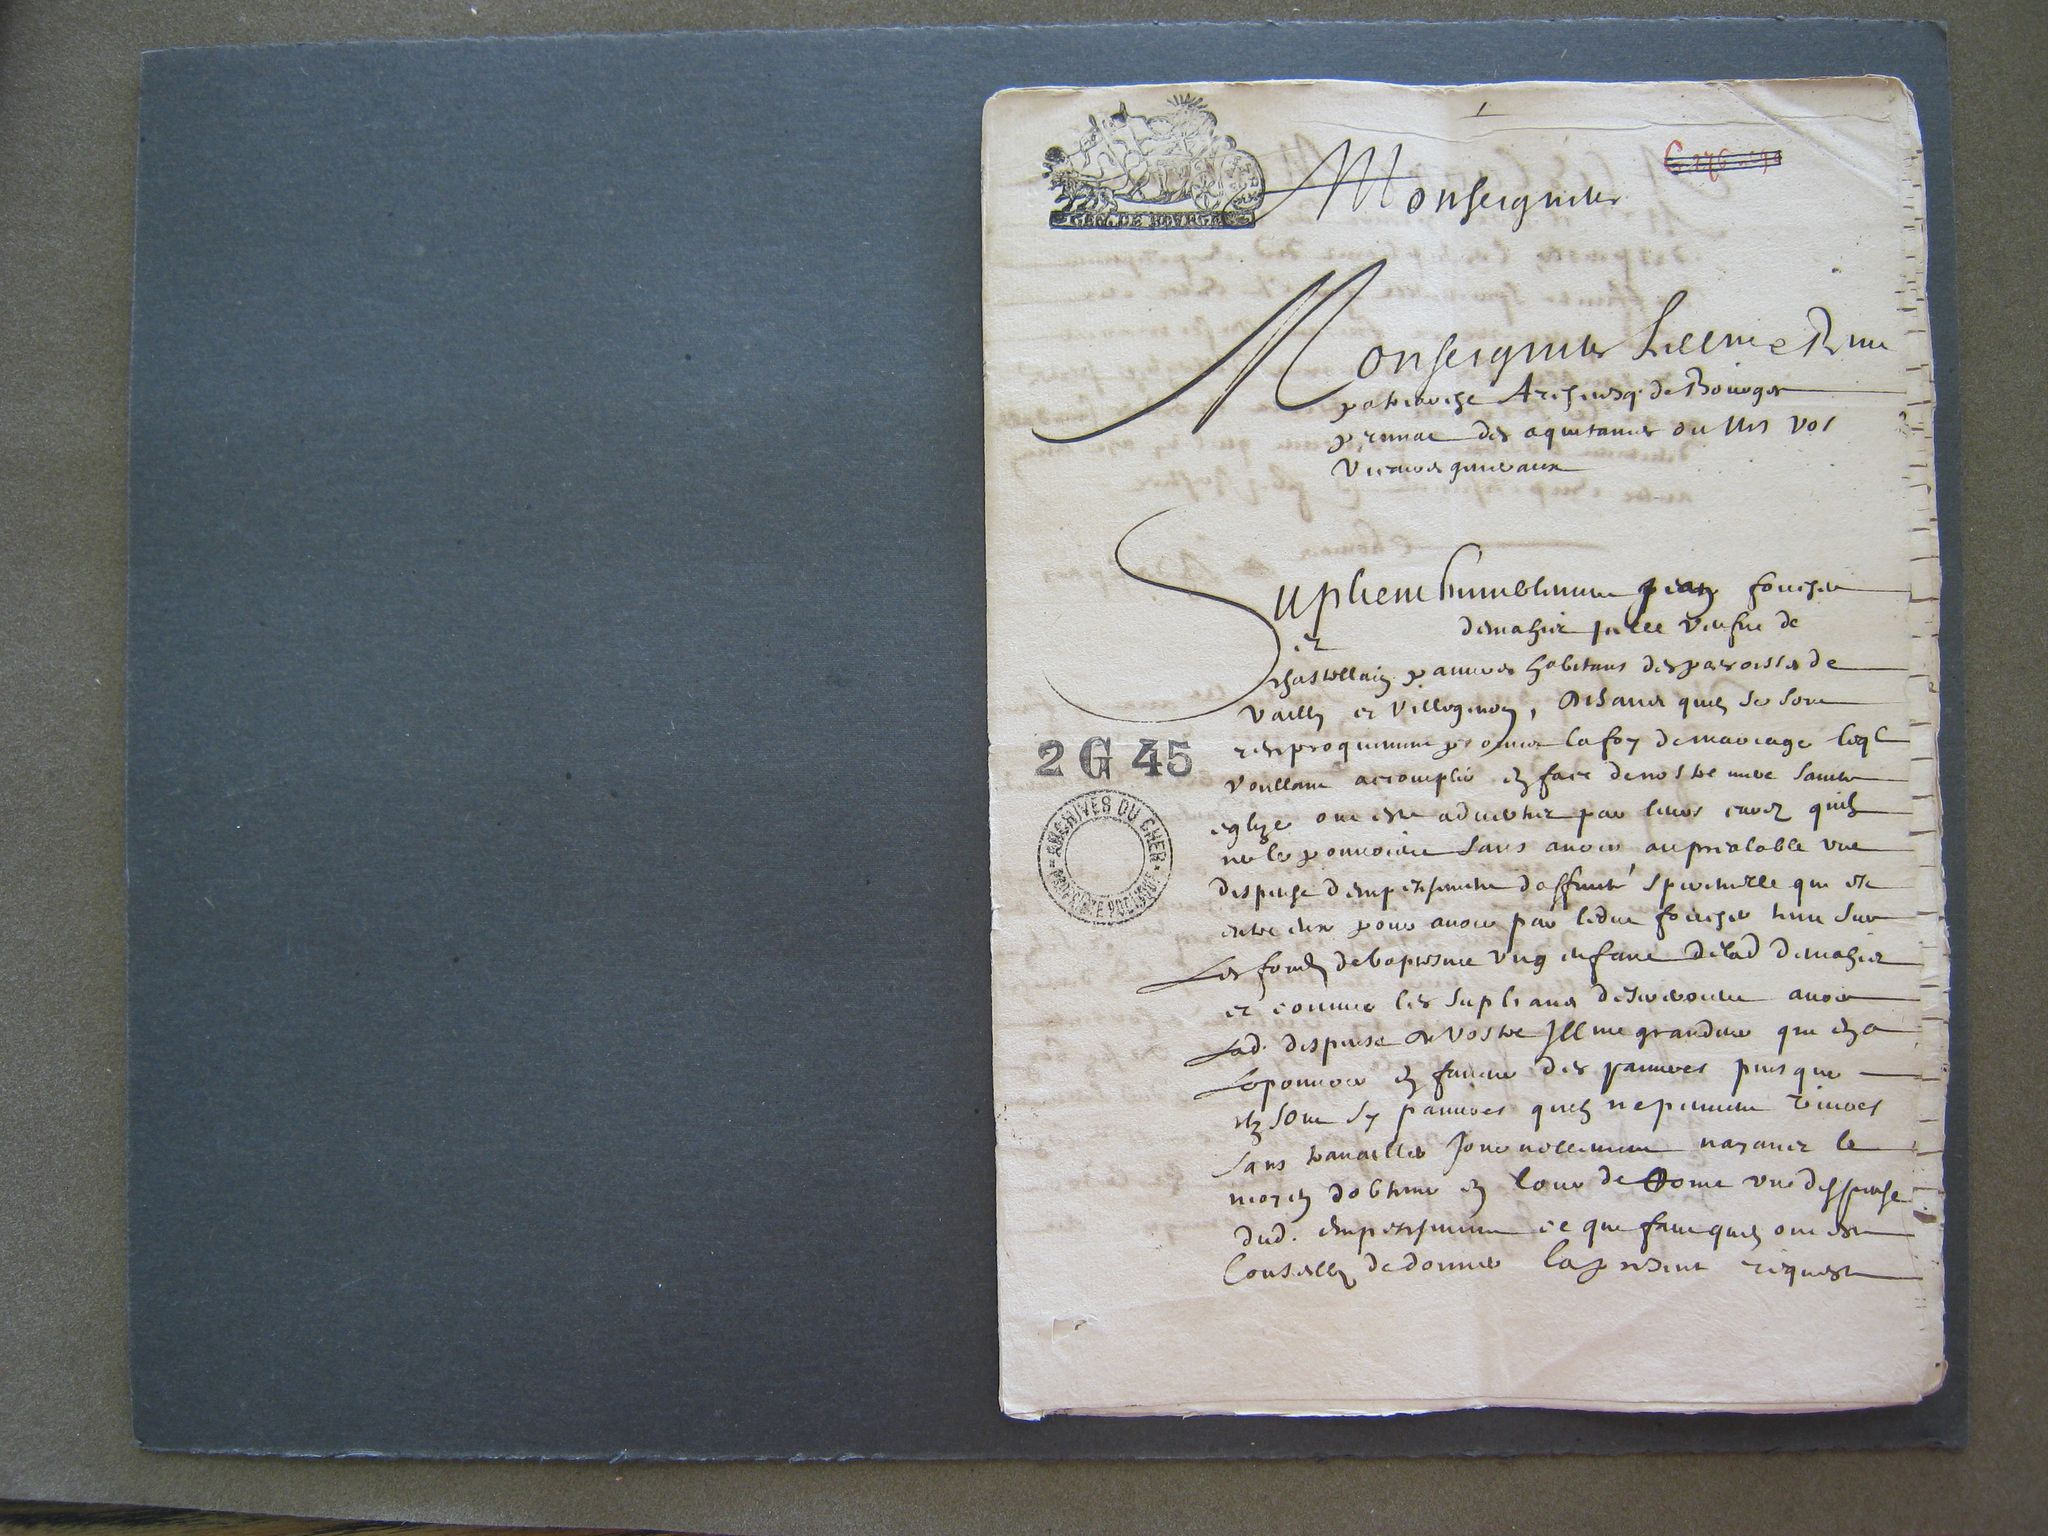 GEN. DE BOURGES
Monseigneur
Monseigneur Illme et Rme
patriarche Archevesq. de Bourges
primac des aquitanies ou Mrs vos
vicaires generaux
Suplient humblement jean foucher
et demahier veufve de
chastellain pauvres habitans des paroisses de
vailly et villegenon, disants quilz se sont
reciproquement promis la foy de mariage leql
voullant accomplir en face de nostre mere saincte
eglize ont esté advertis par leurs curez quilz
ne le pouvoient sans avoir au prealable une
dispense dempeschement daffinité spirituelle qui est
entre eux pour avoir par ledit foucher tenu sur
les fonds de baptesme ung enfant de lad demahier
et comme les supliants desireroient avoir
lad. dispense de vostre Illme grandeur qui en a
le pouvoir en faveur des pauvres puis que
ilz sont sy pauvres quilz ne peuvent vivres
sans travailler journellement nayants le
moyen dobtenir en cour de Rome une dispense
dud. empeschement ce que faict quilz ont esté
conseillez de donner la present requeste
2 G 45
ARCHIVES DU CHER
PROPRIÉTÉ PUBLIQUE